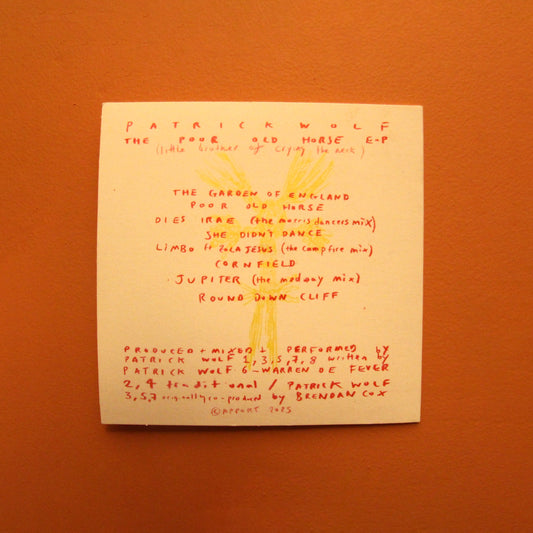 PATRICK WOLF
THE POOR OLD HORSE E-P
(little brother of crying the neck)
THE GARDEN OF ENGLAND
POOR OLD HORSE
DIES IRAE (the morris dancers mix)
SHE DIDN'T DANCE
LIMBO ft ZOLA JESUS (the campfire mix)
CORNFIELD
JUPITER (the medway mix)
ROUND DOWN CLIFF
PRODUCED + MIXED + PERFORMED by
PATRICK WOLF 1,3,5,7,8 written by
PATRICK WOLF 6-WARREN DE FEVER
2,4 traditional / PATRICK WOLF
3,5,7 originally co-produced by BRENDAN COX
©APPORT 2025